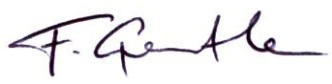 F. Gentle